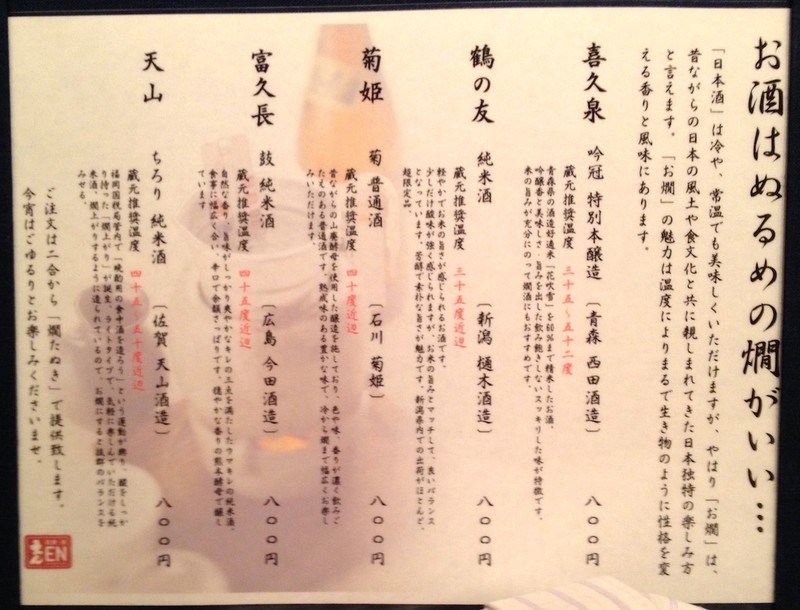 お酒はぬるめの燗がいい…
「日本酒」は冷や、常温でも美味しくいただけますが、やはり「お燗」は、
昔ながらの日本の風土や食文化と共に親しまれてきた日本独特の楽しみ方
と言えます。「お燗」の魅力は温度によりまるで生き物のように性格を変
える香りと風味にあります。
喜久泉 吟冠 特別本醸造 〔青森 西田酒造〕 八〇〇円
蔵元推奨温度 三十五～五十二度
青森県の酒造好適米「花吹雪」を60%まで精米したお酒。
吟醸香と美味しさ・旨みを出した飲み飽きしないスッキリした味が特徴です。
米の旨みが充分にのって燗酒にもおすすめです。
鶴の友 純米酒 〔新潟 樋木酒造〕 八〇〇円
蔵元推奨温度 三十五度近辺
軽やかでお米の旨さが感じられるお酒です。
少しだけ酸味が強く感じられますが、お米の旨みとマッチして、良いバランス
となっています。芳醇で素朴な旨さが魅力です。新潟県内での出荷がほとんど、
超限定品。
菊姫 菊 普通酒 〔石川 菊姫〕 八〇〇円
蔵元推奨温度 四十度近辺
昔ながらの山廃酵母を使用した醸造を施しており、色や味、香りが濃く飲みご
たえのある普通酒です。熟成味のある豊かな味で、冷から燗まで幅広くお楽し
みいただけます。
富久長 鼓 純米酒 〔広島 今田酒造〕 八〇〇円
蔵元推奨温度 四十五度近辺
自然な香り、旨味がしっかり爽やかなキレの三点を満たしたウマキレの純米酒。
食事に幅広く合い、辛口で余韻さっぱりです。穏やかな香りの熊本酵母で醸し
ています
天山 ちろり 純米酒 〔佐賀 天山酒造〕 八〇〇円
蔵元推奨温度 四十五～五十度近辺
福岡国税局管内で「晩酌用の食中酒を造ろう」という運動が興り、蔵をしっか
り持った「燗上がり」が誕生。ライトタイプで、気軽に楽しんでいただける純
米酒。燗上がりするように造られているので、お燗にすると抜群のバランスを
みせる。
ご注文は二合から「燗たぬき」で提供致します。
今宵はごゆるりとお楽しみくださいませ。
EN